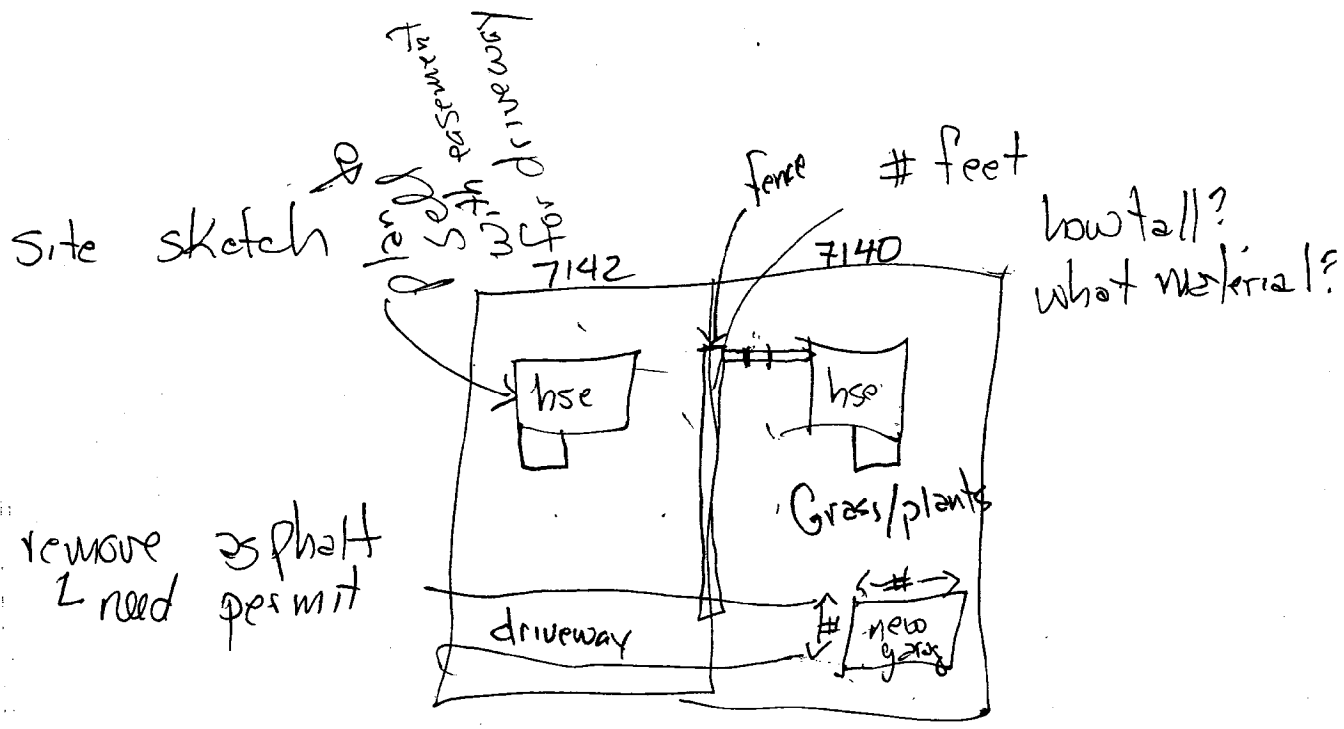 Site sketch &
plan
sell
with easement
for driveway
7142
fence
# feet
7140
how tall?
what material?
hse
hse
Grass/plants
remove asphalt
need permit
driveway
#
#
new
garag